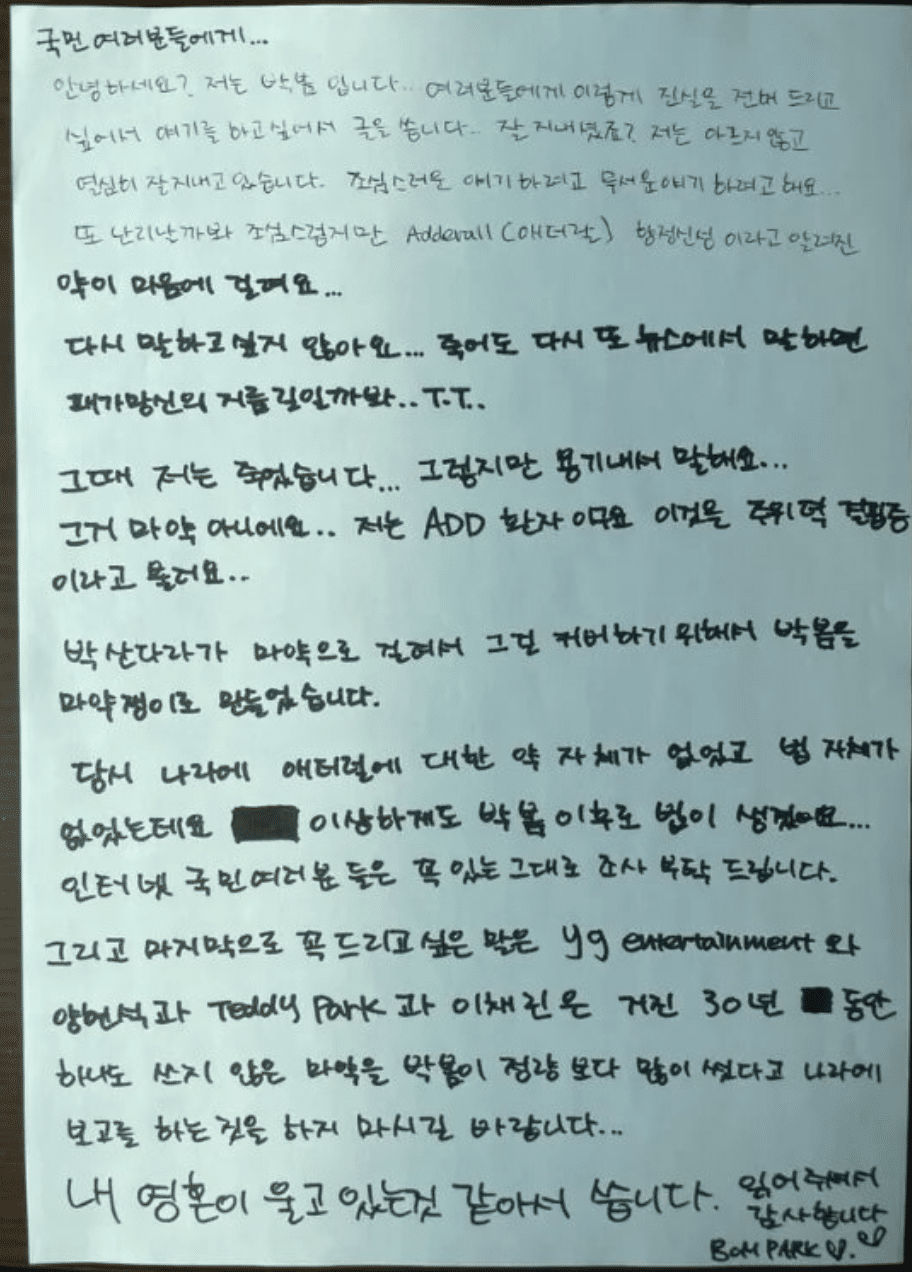 국민 여러분들에게...
안녕하세요? 저는 박봄 입니다... 여러분들에게 이렇게 진실을 전해 드리고
싶어서 얘기를 하고싶어서 글을 씁니다.. 잘 지내셨죠? 저는 아프지 않고
열심히 잘지내고 있습니다. 조심스러운 얘기하려고 무서운얘기 하려고해요...
또 난리날까봐 조심스럽지만 Adderall (애더럴) 향정신성 이라고 알려진
약이 마음에 걸려요...
다시 말하고싶지 않아요... 죽어도 다시 또 뉴스에서 말하면
패가망신의 지름길일까봐.. T.T..
그때 저는 죽었습니다... 그렇지만 용기내서 말해요...
그거 마약 아니에요.. 저는 ADD 환자 이구요 이것은 주위력 결핍증
이라고 불려요..
박산다라가 마약으로 걸려서 그걸 커버하기 위해서 박봄을
마약쟁이로 만들었습니다.
당시 나라에 애터럴에 대한 약 자체가 없었고 법 자체가
없었는데요 이상하게도 박봄 이후로 법이 생겼어요...
인터넷 국민여러분 들은 꼭 있는그대로 조사 부탁 드립니다.
그리고 마지막으로 꼭드리고싶은 말은 yg entertainment 와
양현석과 Teddy Park과 이채린은 거진 30년 동안
하나도 쓰지 않은 마약을 박봄이 정량 보다 많이 썼다고 나라에
보고를 하는것을 하지 마시길 바랍니다...
내 영혼이 울고있는것 같아서 씁니다. 읽어주셔서
감사합니다
BOM PARK ♡. ♡